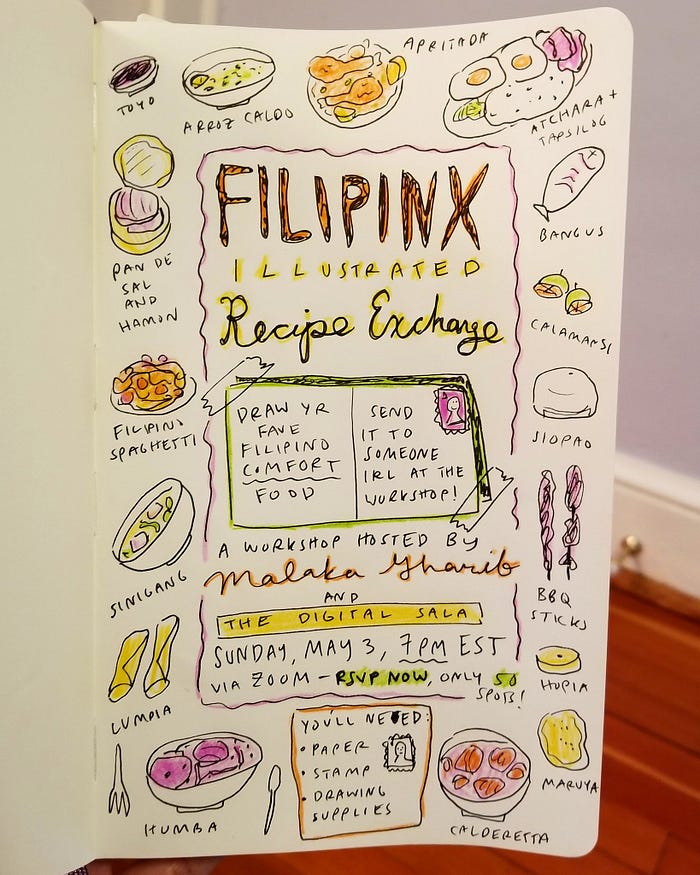 TOYO
ARROZ CALDO
APRITADA
ATCHARA +
TAPSILOG
PAN DE
SAL
AND
HAMON
FILIPINO
SPAGHETTI
SINIGANG
LUMPIA
FILIPINX
ILLUSTRATED
Recipe Exchange
DRAW YR
FAVE
FILIPINO
COMFORT
FOOD
SEND
IT TO
SOMEONE
IRL AT THE
WORKSHOP!
A WORKSHOP HOSTED BY
Malaka Gharib
AND
THE DIGITAL SALA
SUNDAY, MAY 3, 7PM EST
VIA ZOOM – RSVP NOW, ONLY 50
SPOTS!
BANGUS
CALAMANSI
SIOPAO
BBQ
STICKS
HOPIA
MARUYA
HUMBA
YOU'LL NEED:
• PAPER
• STAMP
• DRAWING
SUPPLIES
CALDERETTA